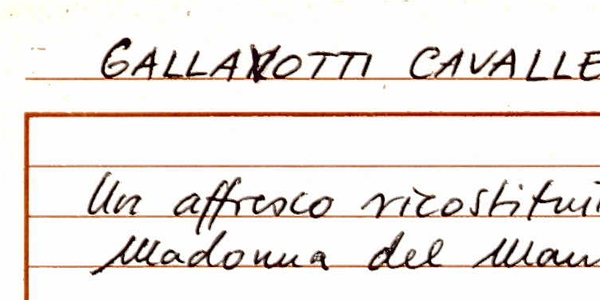 GALLAVOTTI CAVALLE
Un affresco ricostitui
Madonna del Man